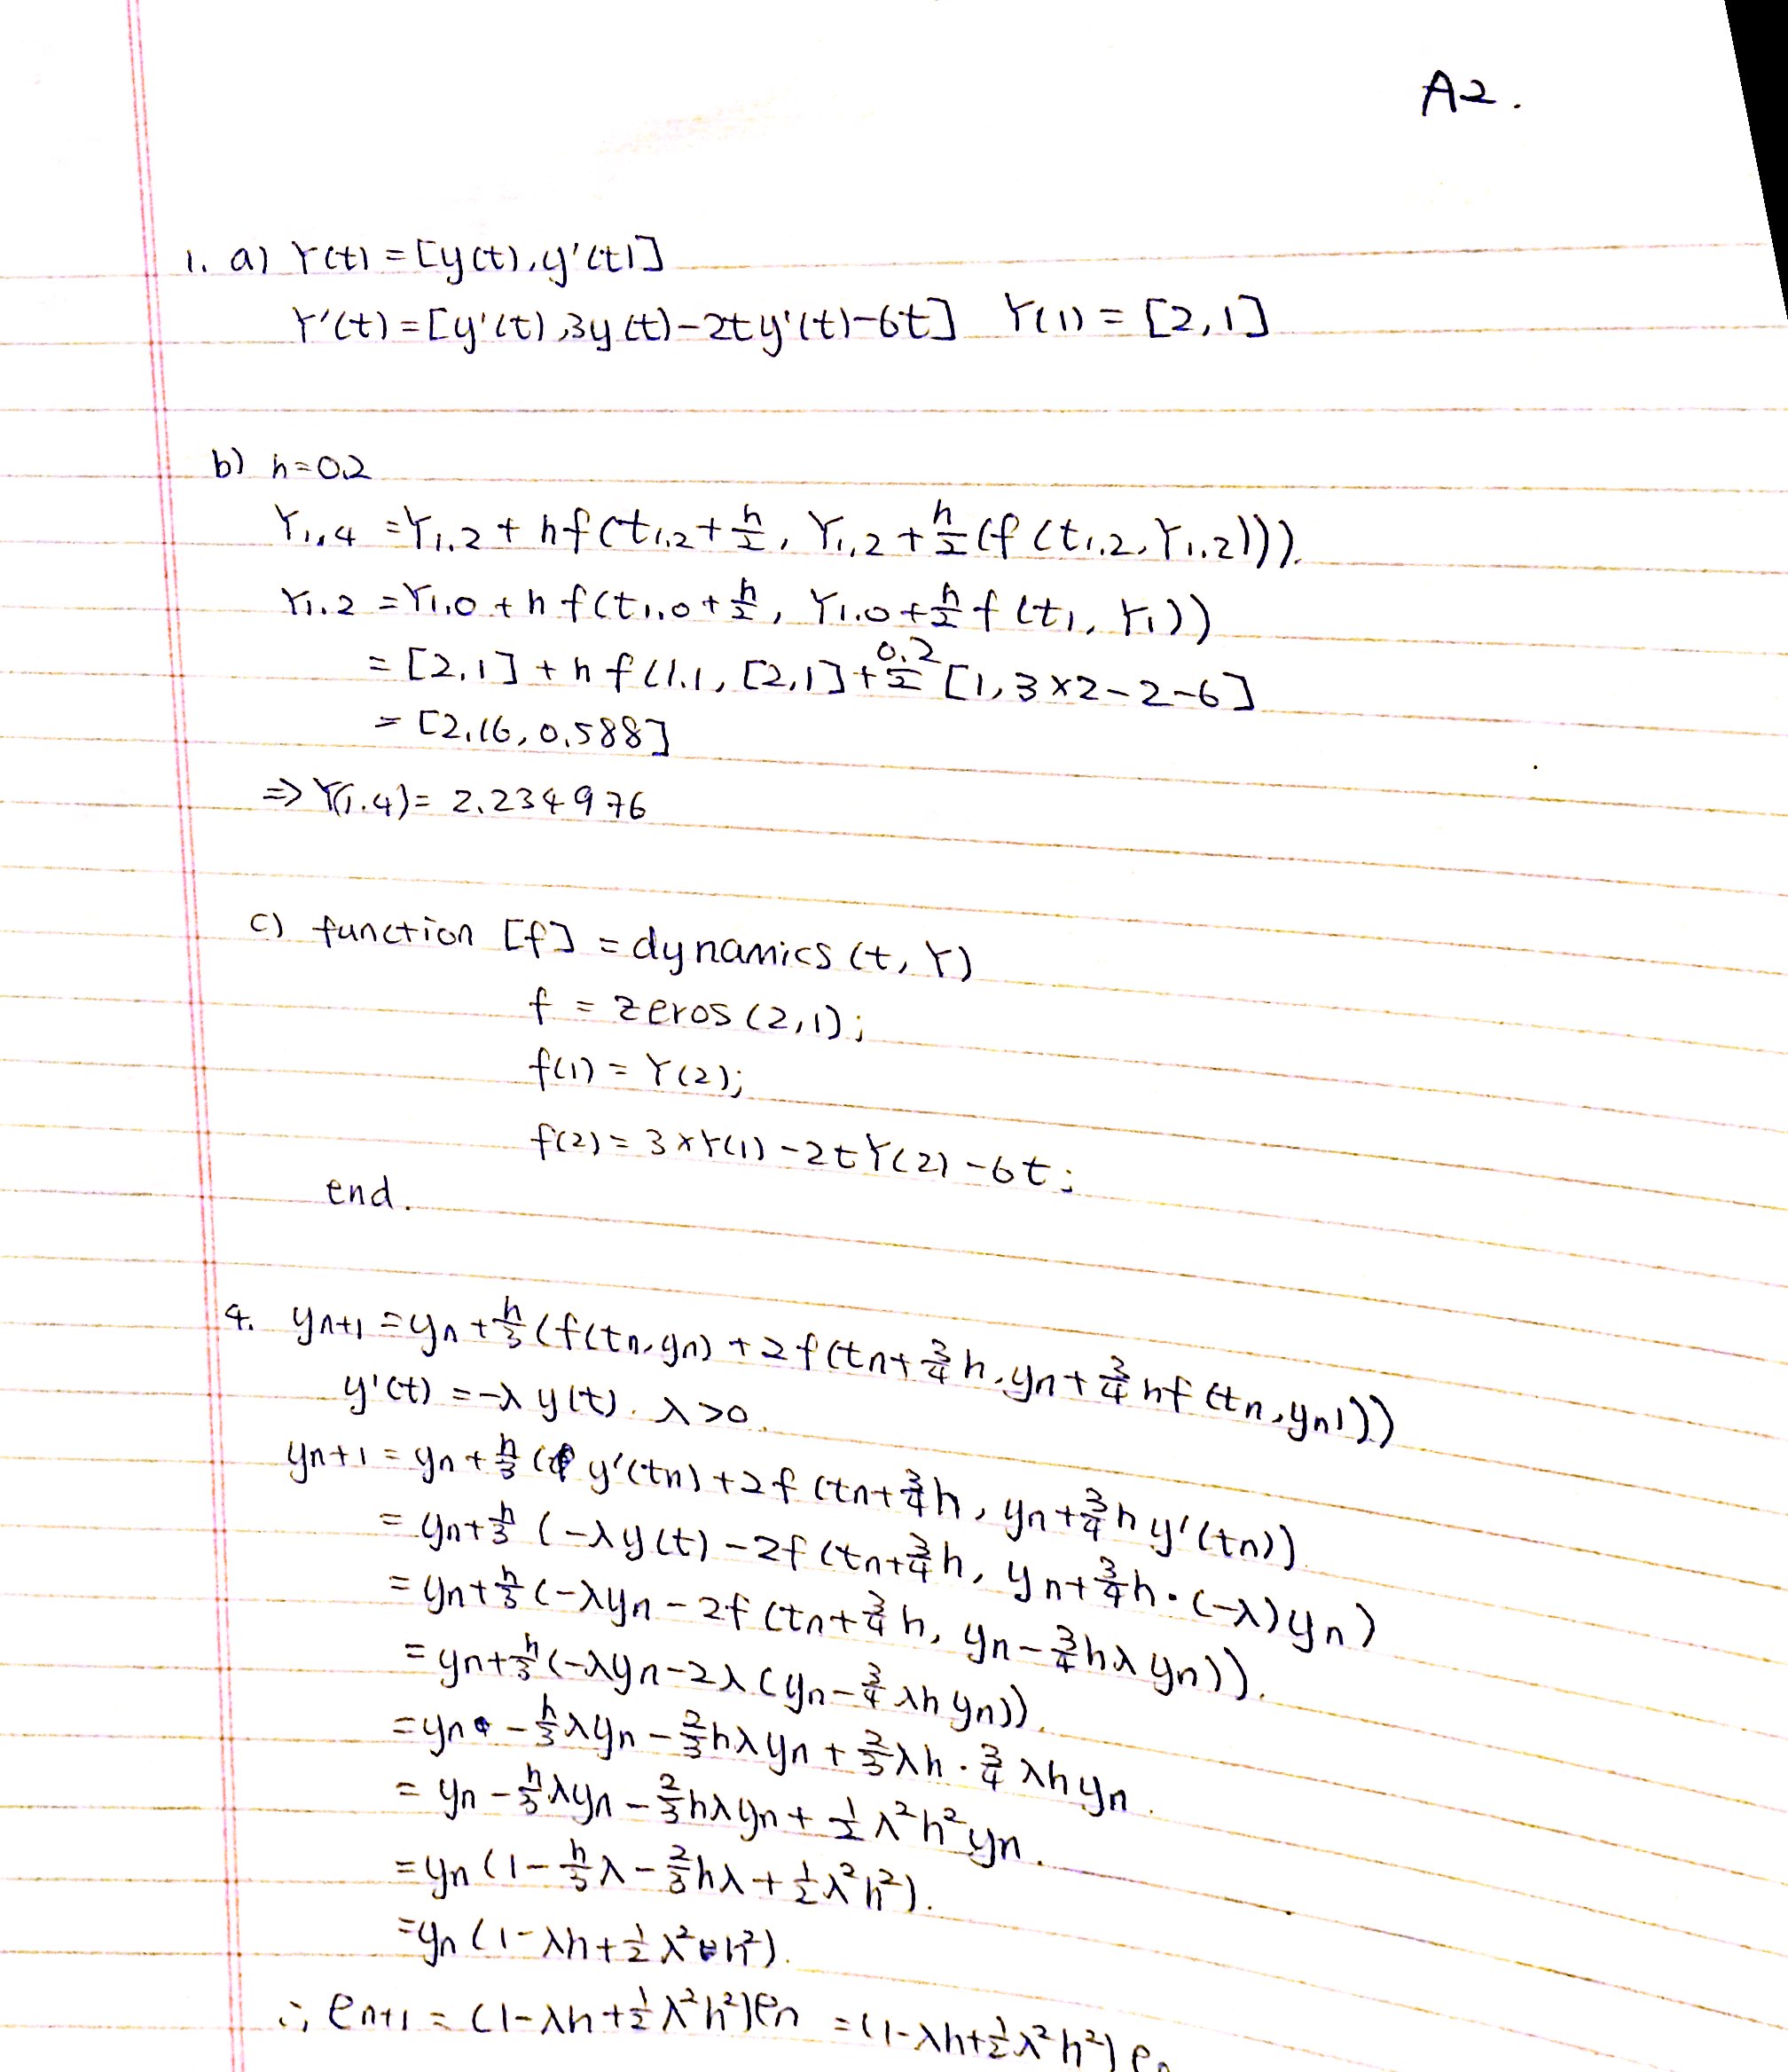 A2.
1. a) Y(t) = [y(t), y'(t)]
Y'(t) = [y'(t), 3y(t) - 2ty'(t) - 6t] Y(1) = [2, 1]
b) h = 0.2
Y1.4 = Y1.2 + hf(t1.2 + h/2, Y1.2 + h/2 (f(t1.2, Y1.2))).
Y1.2 = Y1.0 + hf(t1.0 + h/2, Y1.0 + h/2 f(t1, Y1))
= [2, 1] + hf(1.1, [2, 1] + 0.2/2 [1, 3×2-2-6]
= [2.16, 0.588]
⇒ Y(1.4) = 2.234976
c) function [f] = dynamics (t, Y)
f = zeros(2,1);
f(1) = Y(2);
f(2) = 3×Y(1) - 2tY(2) - 6t;
end.
4. yn+1 = yn + h/3 (f(tn, yn) + 2f(tn + 3/4 h, yn + 3/4 hf(tn, yn)))
y'(t) = -λy(t). λ>0.
yn+1 = yn + h/3 (y'(tn) + 2f(tn + 3/4 h, yn + 3/4 h y'(tn)).
= yn + h/3 (-λy(t) - 2f(tn + 3/4 h, yn + 3/4 h·(-λ)yn)
= yn + h/3 (-λyn - 2f(tn + 3/4 h, yn - 3/4 hλyn)).
= yn + h/3 (-λyn - 2λ(yn - 3/4 λhyn)).
= yn - h/3 λyn - 2/3 hλyn + 2/3 λh · 3/4 λhyn.
= yn - h/3 λyn - 2/3 hλyn + 1/2 λ²h²yn.
= yn (1 - h/3 λ - 2/3 hλ + 1/2 λ²h²).
= yn (1 - λh + 1/2 λ²h²).
∴ en+1 = (1 - λh + 1/2 λ²h²)en = (1 - λh + 1/2 λ²h²) e